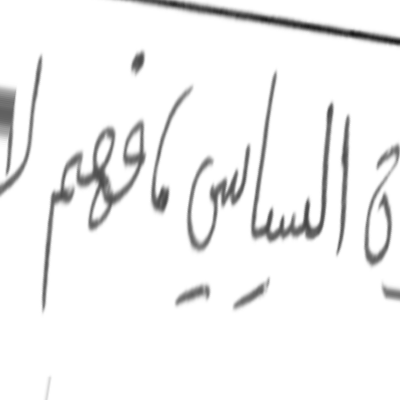 السياسي، فهم لا